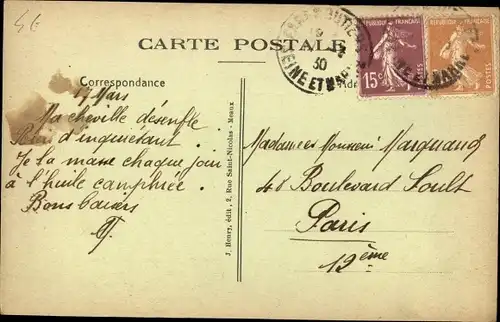 CARTE POSTALE
Correspondance
17 Mars
Ma cheville désenfle
Rien d'inquiétant.
Je la masse chaque jour
à l'huile camphrée.
Bons baisers
J. Henry, édit., 2, Rue Saint-Nicolas - Meaux
SEINE ET M
30
REPUBLIQUE FRANÇAISE
15c
REPUBLIQUE FRANÇAISE
Madame et Monsieur Marquand
48 Boulevard Soult
Paris
12ème